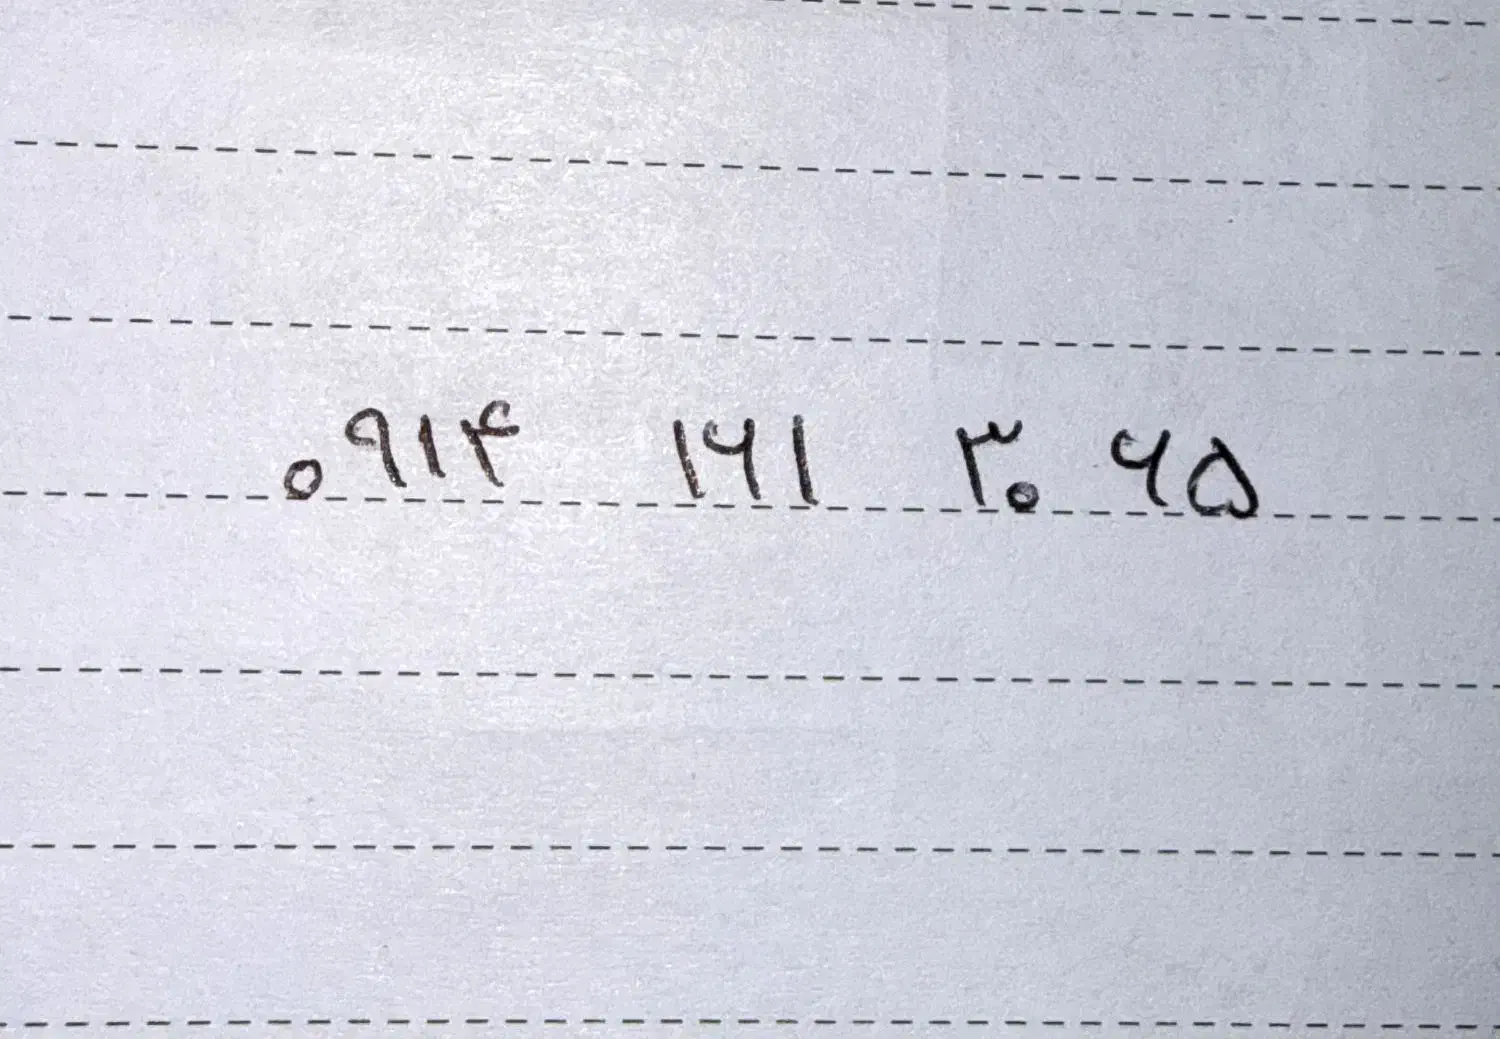 ۰۹۱۴ ۱۶۱ ۳۰ ۶۵